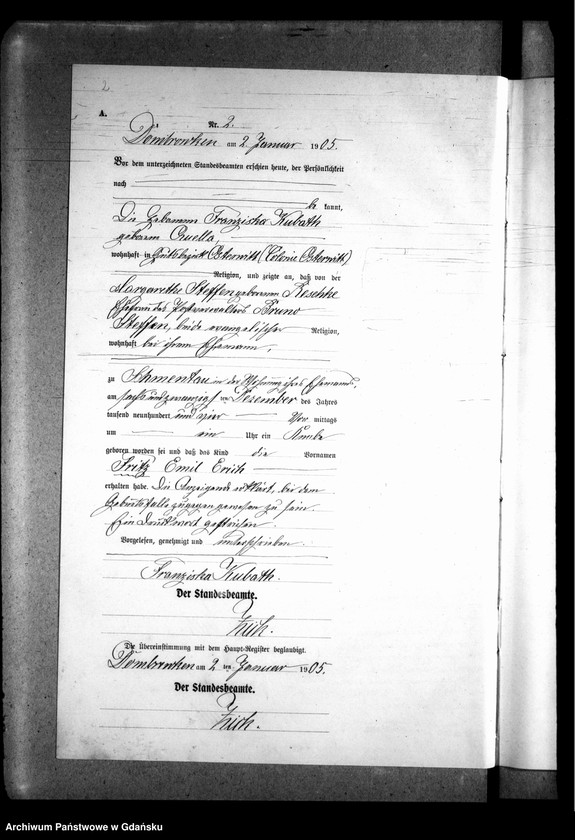 2
A.
Nr. 2.
Dombrowken am 2. Januar 1905.
Vor dem unterzeichneten Standesbeamten erschien heute, der Persönlichkeit
nach
be kannt,
Die Hebamme Franziska Kubath
geborene
wohnhaft in Gutsbezirk Osterwitt (Colonie Osterwitt)
Religion, und zeigte an, daß von der
Margarethe Steffen geborenen Reschke
Ehefrau des Bruno
Steffen, beide evangelischer Religion,
wohnhaft bei ihrem Ehemann,
zu Schmentau in der Wohnung ihres Ehemanns,
am sechs und zwanzigsten Dezember des Jahres
tausend neunhundert und vier Vor mittags
um ein Uhr ein Knabe
geboren worden sei und daß das Kind die Vornamen
Fritz Emil Erich
erhalten habe. Die Anzeigende erklärt, bei dem
Geburtsfalle zugegen gewesen zu sein.
Ein Druckwort gestrichen
Vorgelesen, genehmigt und unterschrieben
Franziska Kubath.
Der Standesbeamte.
Die Übereinstimmung mit dem Haupt-Register beglaubigt.
Dombrowken am 2 ten Januar 1905.
Der Standesbeamte.
Archiwum Państwowe w Gdańsku